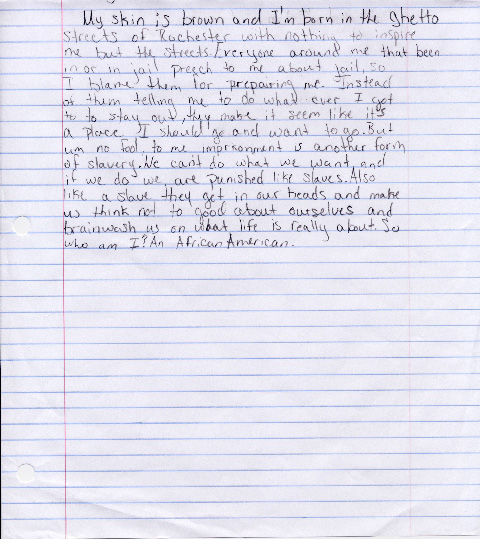 My skin is brown and I'm born in the ghetto
streets of Rochester with nothing to inspire
me but the streets. Everyone around me that been
in or in jail preech to me about jail, so
I blame them for preparing me. Instead
of them telling me to do what ever I got
to to stay out, they make it seem like it's
a place I should go and want to go. But
um no fool, to me imprisonment is another form
of slavery. We can't do what we want, and
if we do we, are punished like slaves. Also
like a slave they get in our heads and make
us think not to good about ourselves and
brainwash us on what life is really about. So
who am I? An African American.